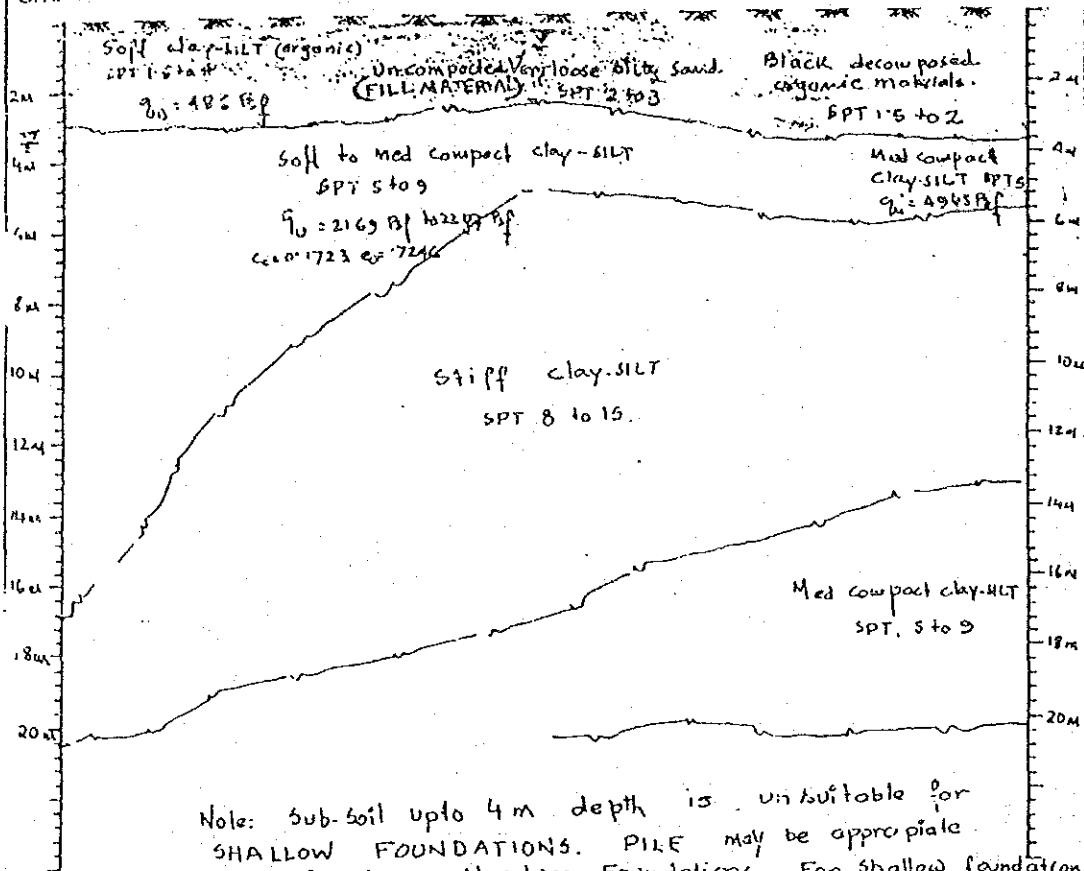 Soft clay-SILT (organic)
SPT 1.5 to 4
qu = 486 Psf
Uncompacted Very loose Silty Sand.
(FILL MATERIAL) SPT 2 to 3
Black decomposed
organic materials.
SPT 1.5 to 2
Soft to med compact clay-SILT
SPT 5 to 9
qu = 2169 Psf to Psf
Cc = 0.1723 eo = .7246
Med compact
Clay-SILT SPT 5
qu = 4945 Psf
Stiff clay-SILT
SPT 8 to 15.
Med compact clay-SILT
SPT. 5 to 9
2M
4M
6M
8M
10M
12M
14M
16M
18M
20M
2M
4M
6M
8M
10M
12M
14M
16M
18M
20M
Note: Sub-Soil upto 4 m depth is unsuitable for
SHALLOW FOUNDATIONS. PILE may be appropiate
Foundations. For Shallow foundation